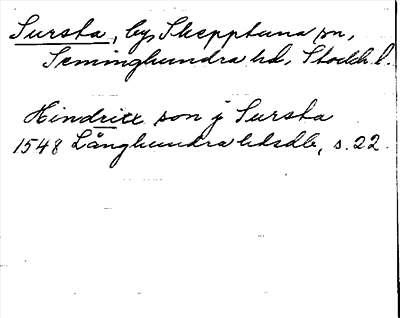 Sursta, by, Skepptuna sn,
Seminghundra hd, Stockh. l.
Hindrick son j Sursta
1548 Långhundra hdsdb, s. 22.